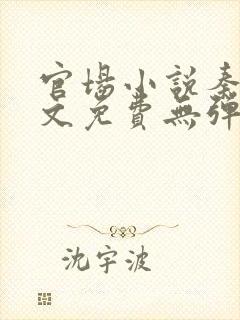 官場小說秦
文免費無彈
沈宇波